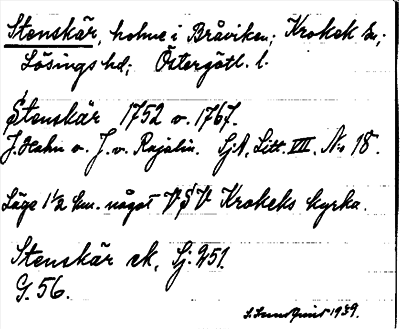 Stenskär, holme i Bråviken; Krokek sn;
Lösings hd; Östergötl. l.
Stenskär 1752 o. 1767.
J. Hahn o. J. v. Rajalin. SjA, Litt. VIII, No 18.
Läge 1½ km. något VSV Krokeks kyrka.
Stenskär ek, Sj. 251.
G. 56.
1939.